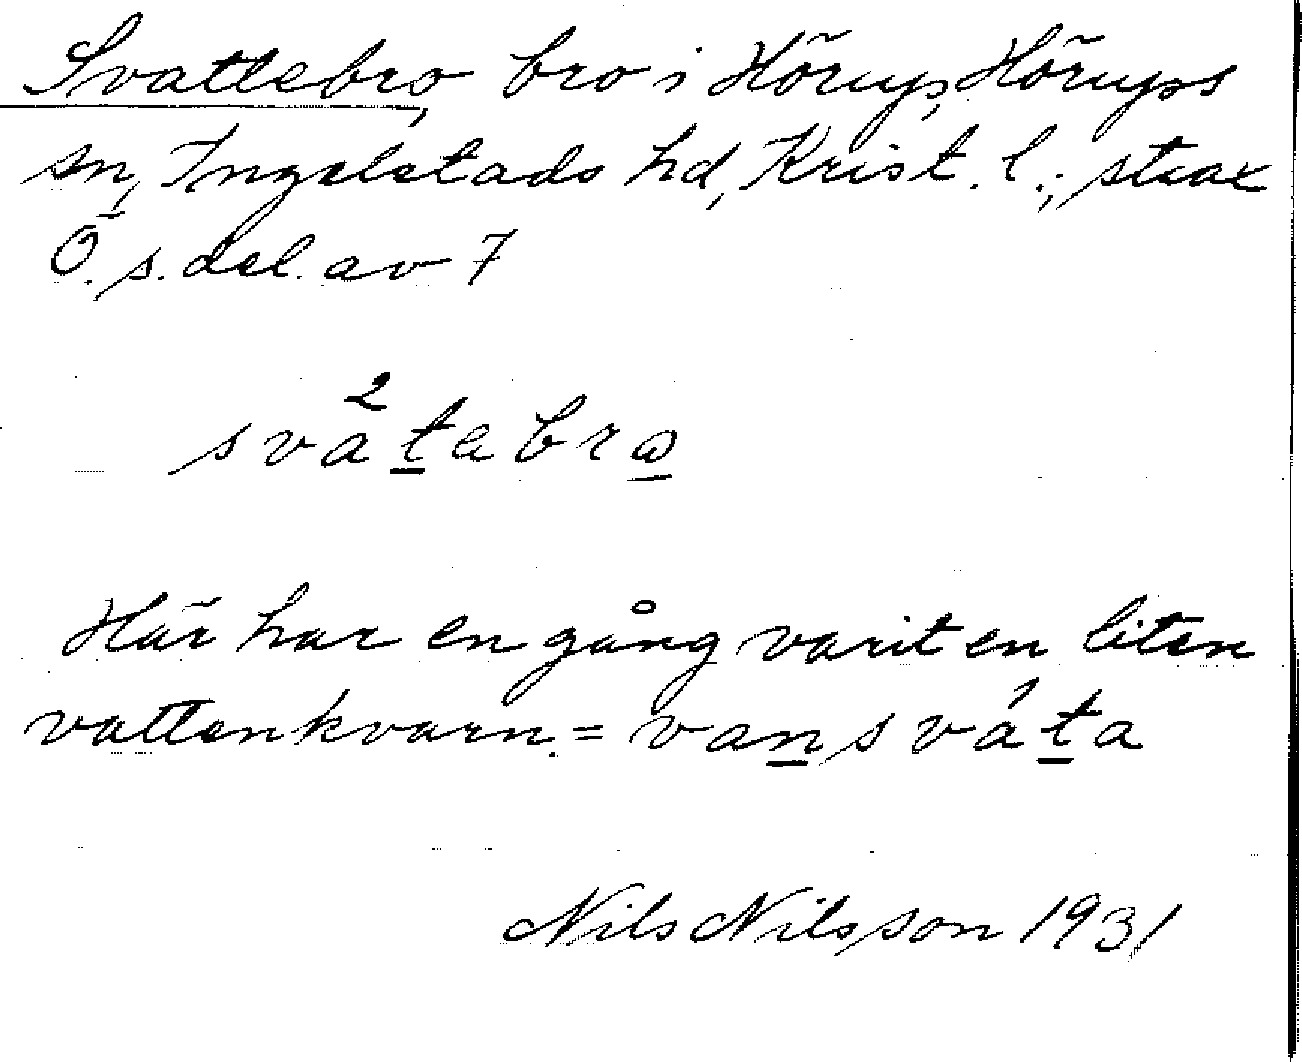 Svattebro, bro i Hörup, Hörups
sn, Ingelstads hd, Krist. l.; strax
Ö. s. del. av 7
sva²t̲abrω̲
Här har en gång varit en liten
vattenkvarn. = van̲svát̲a
Nils Nilsson 1931